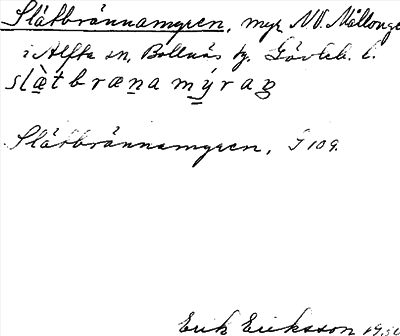 Slåtbrännamyren, myr NV. Mållånge
i Alfta sn, Bollnäs tg. Gävleb. l.
slætbræna mýraŋ
Slåtbrännamyren, J 109.
Erik Eriksson 19.30